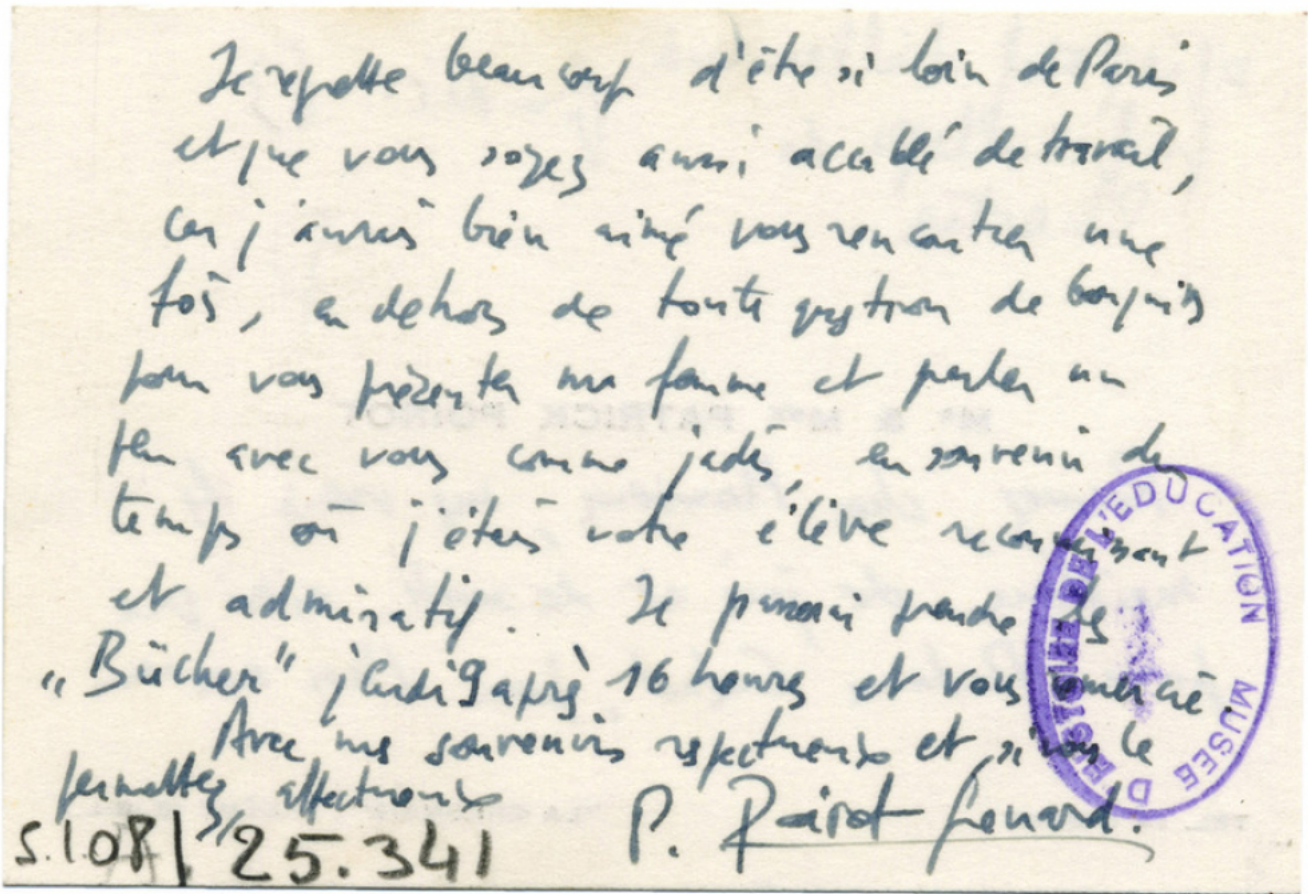 Je regrette beaucoup d'être si loin de Paris
et que vous soyez aussi accablé de travail,
car j'aurais bien aimé vous rencontrer une
fois, en dehors de toute question de bouquins
pour vous présenter ma femme et parler un
peu avec vous comme jadis, en souvenir du
temps où j'étais votre élève reconnaissant
et admiratif. Je passerai prendre les
„Bücher" jeudi 9 après 16 heures et vous remercie.
Avec mes souvenirs respectueux et, si vous le
permettez, affectueux
P.
S.108/ 25.341
MUSEE D'HISTOIRE DE L'EDUCATION
MR & MME PATRICK POIROT